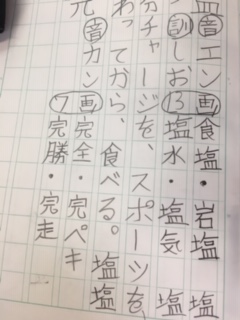 塩 音エン 画食塩・岩塩 塩
訓しお 13 塩水・塩気 塩
分チャージを、スポーツを、
わってから、食べる。塩塩
完 音カン 画完全・完ペキ
7 完勝・完走